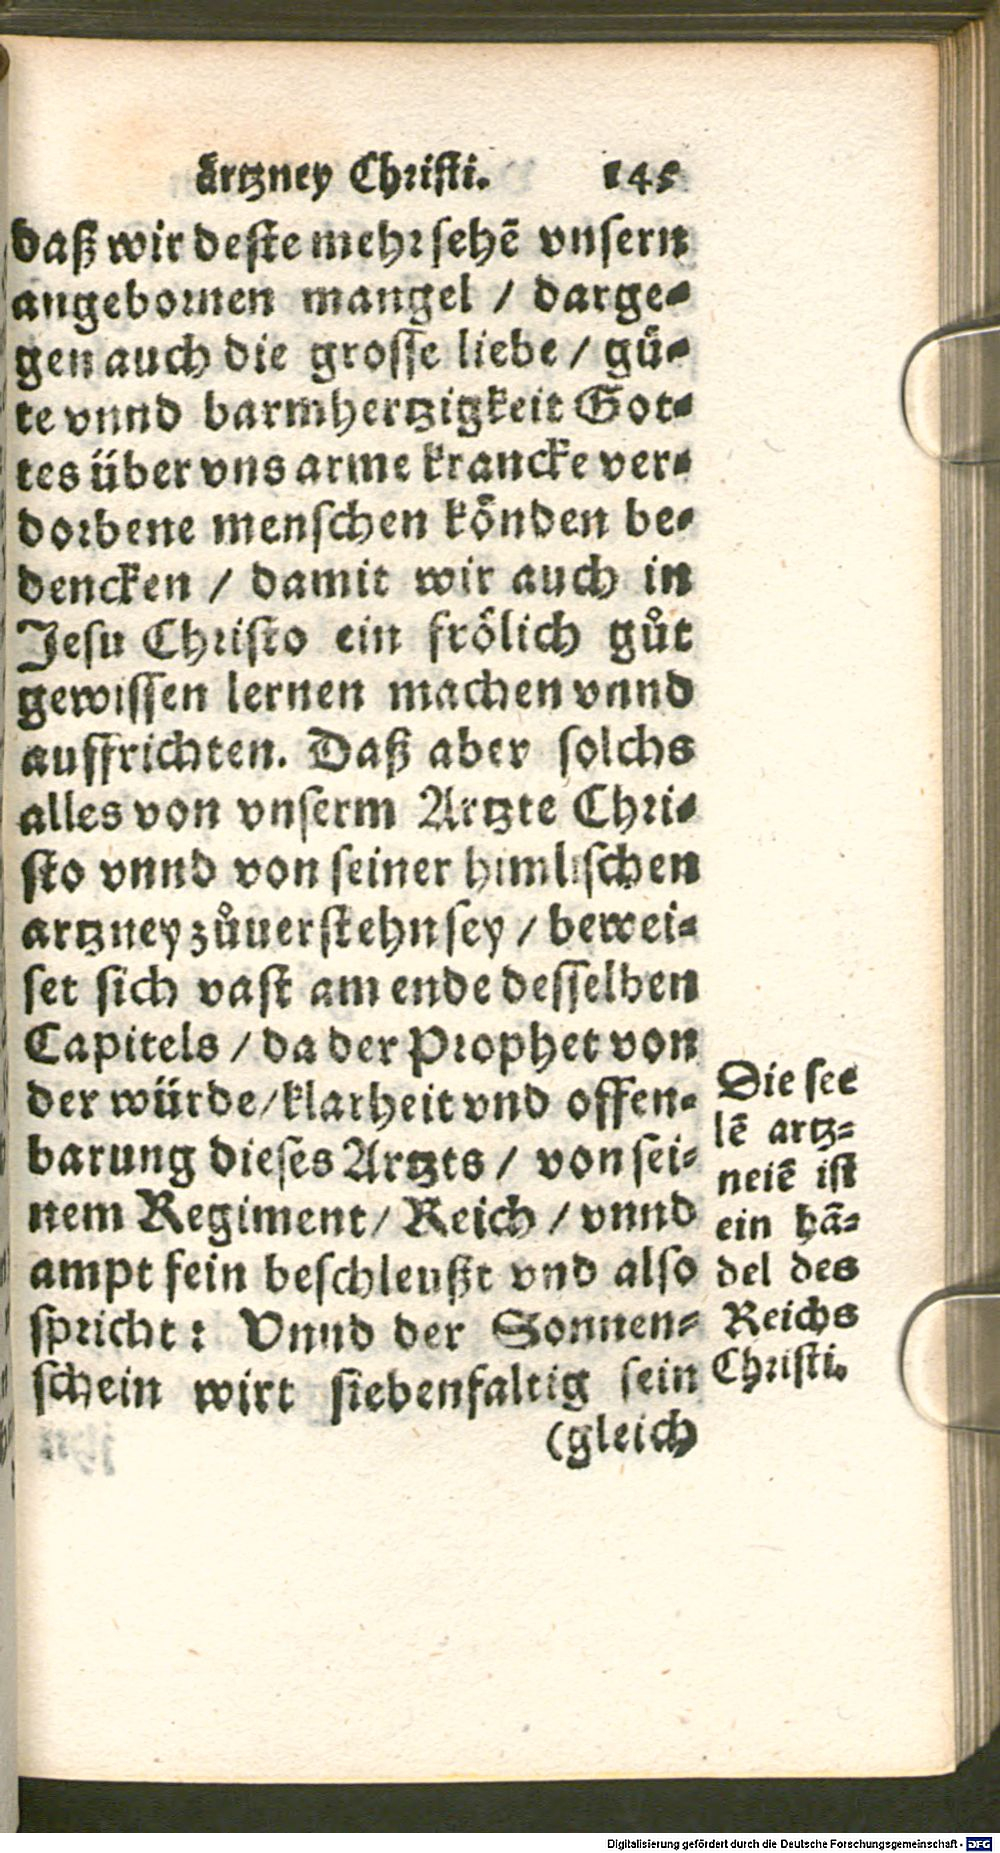 ärtzney Christi. 145
daß wir deste mehr sehē vnsern
angebornen mangel / darge-
gen auch die grosse liebe / guͤ-
te vnnd barmhertzigkeit Got-
tes über vns arme krancke ver-
dorbene menschen koͤnden be-
dencken / damit wir auch in
Jesu Christo ein froͤlich guͦt
gewissen lernen machen vnnd
auffrichten. Daß aber solchs
alles von vnserm Artzte Chri-
sto vnnd von seiner himlischen
artzney zuͦuerstehn sey / bewei-
set sich vast am ende desselben
Capitels / da der Prophet von
der würde / klarheit vnd offen-
barung dieses Artzts / von sei-
nem Regiment / Reich / vnnd
ampt fein beschleußt vnd also
spricht: Vnnd der Sonnen-
schein wirt siebenfaltig sein
(gleich
Die see
lē artz-
neiē ist
ein hā-
del des
Reichs
Christi.
Digitalisierung gefördert durch die Deutsche Forschungsgemeinschaft - DFG